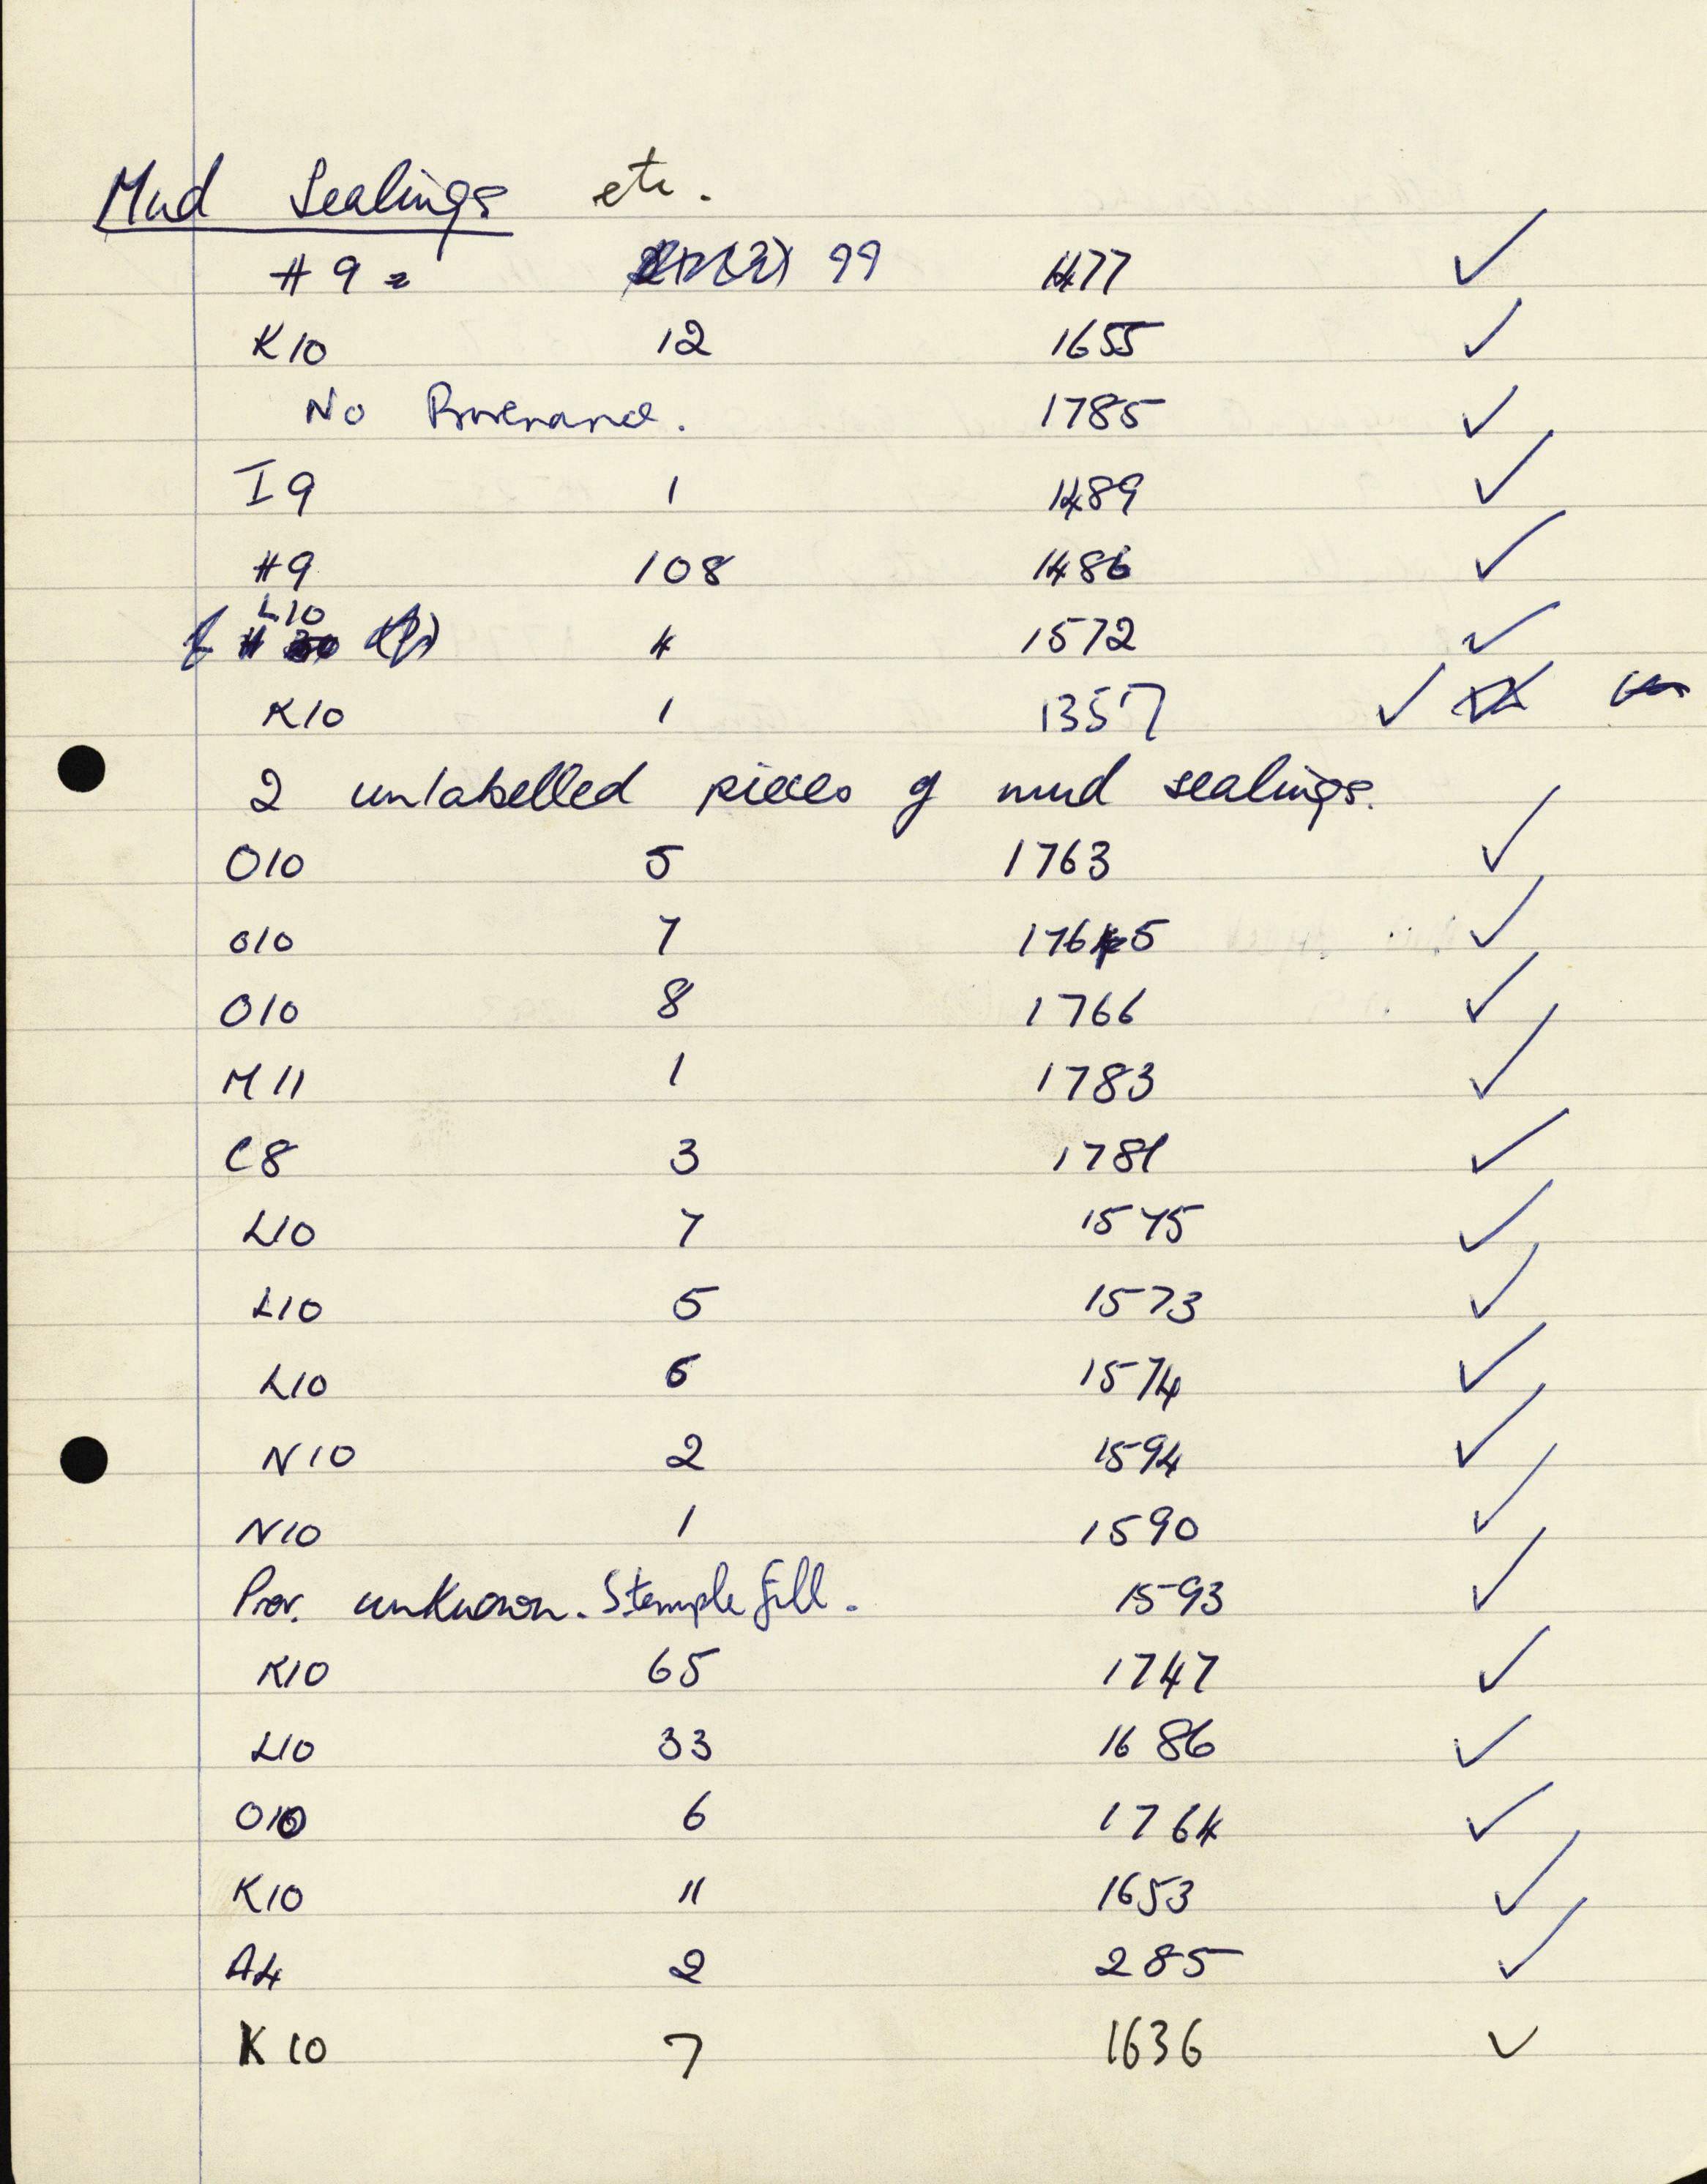 Mud Sealings etc.
H9 = 99 1477 ✓
K10 12 1655 ✓
No Provenance. 1785 ✓
I9 1 1489 ✓
H9 108 1486 ✓
L10
4 1572 ✓
K10 1 1357 ✓
2 unlabelled pieces of mud sealings.
O10 5 1763 ✓
O10 7 1765 ✓
O10 8 1766 ✓
M11 1 1783 ✓
C8 3 1781 ✓
L10 7 1575 ✓
L10 5 1573 ✓
L10 6 1574 ✓
N10 2 1594 ✓
N10 1 1590 ✓
Prov. unknown. S temple fill. 1593 ✓
K10 65 1747 ✓
L10 33 1686 ✓
O10 6 1764 ✓
K10 11 1653 ✓
A4 2 285 ✓
K10 7 1636 ✓